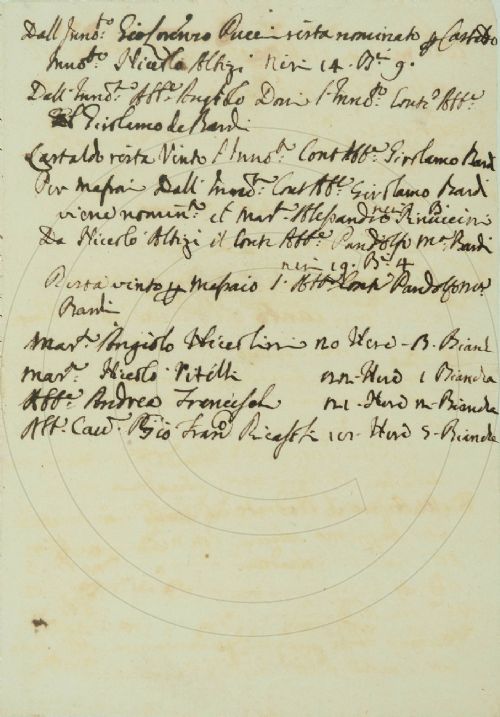 Dall'Innto: Gio Lorenzo Pucci resta nominato p Castaldo
Innto: Nicolo Altizi neri 14. Bi: 9.
Dall'Innto: Abte: Angiolo Doni l'Innto: Conte: Abte:
Girolamo de Bardi
Castaldo resta Vinto l'Innto: Cont Abte: Girolamo Bardi
Per Massai Dall'Innto: Cont Abte: Girolamo Bardi
viene nomin: il Mar: Alessandro Rinuccini
Da Nicolo Altizi il Conte Abte: Pandolfo Ma: Bardi
neri 19. Bi: 4
Resta vinto p Massaio l' Abte: Conte Pandolfo Ma:
Bardi
Mar: Angiolo Niccolini Nere - Bianc
Mar: Nicolo Vitelli Nere 1 Bianche
Abte: Andrea Franceschi Nere Bianche
Alt: Cav: Fran: Ricasoli Nere 5 - Bianche